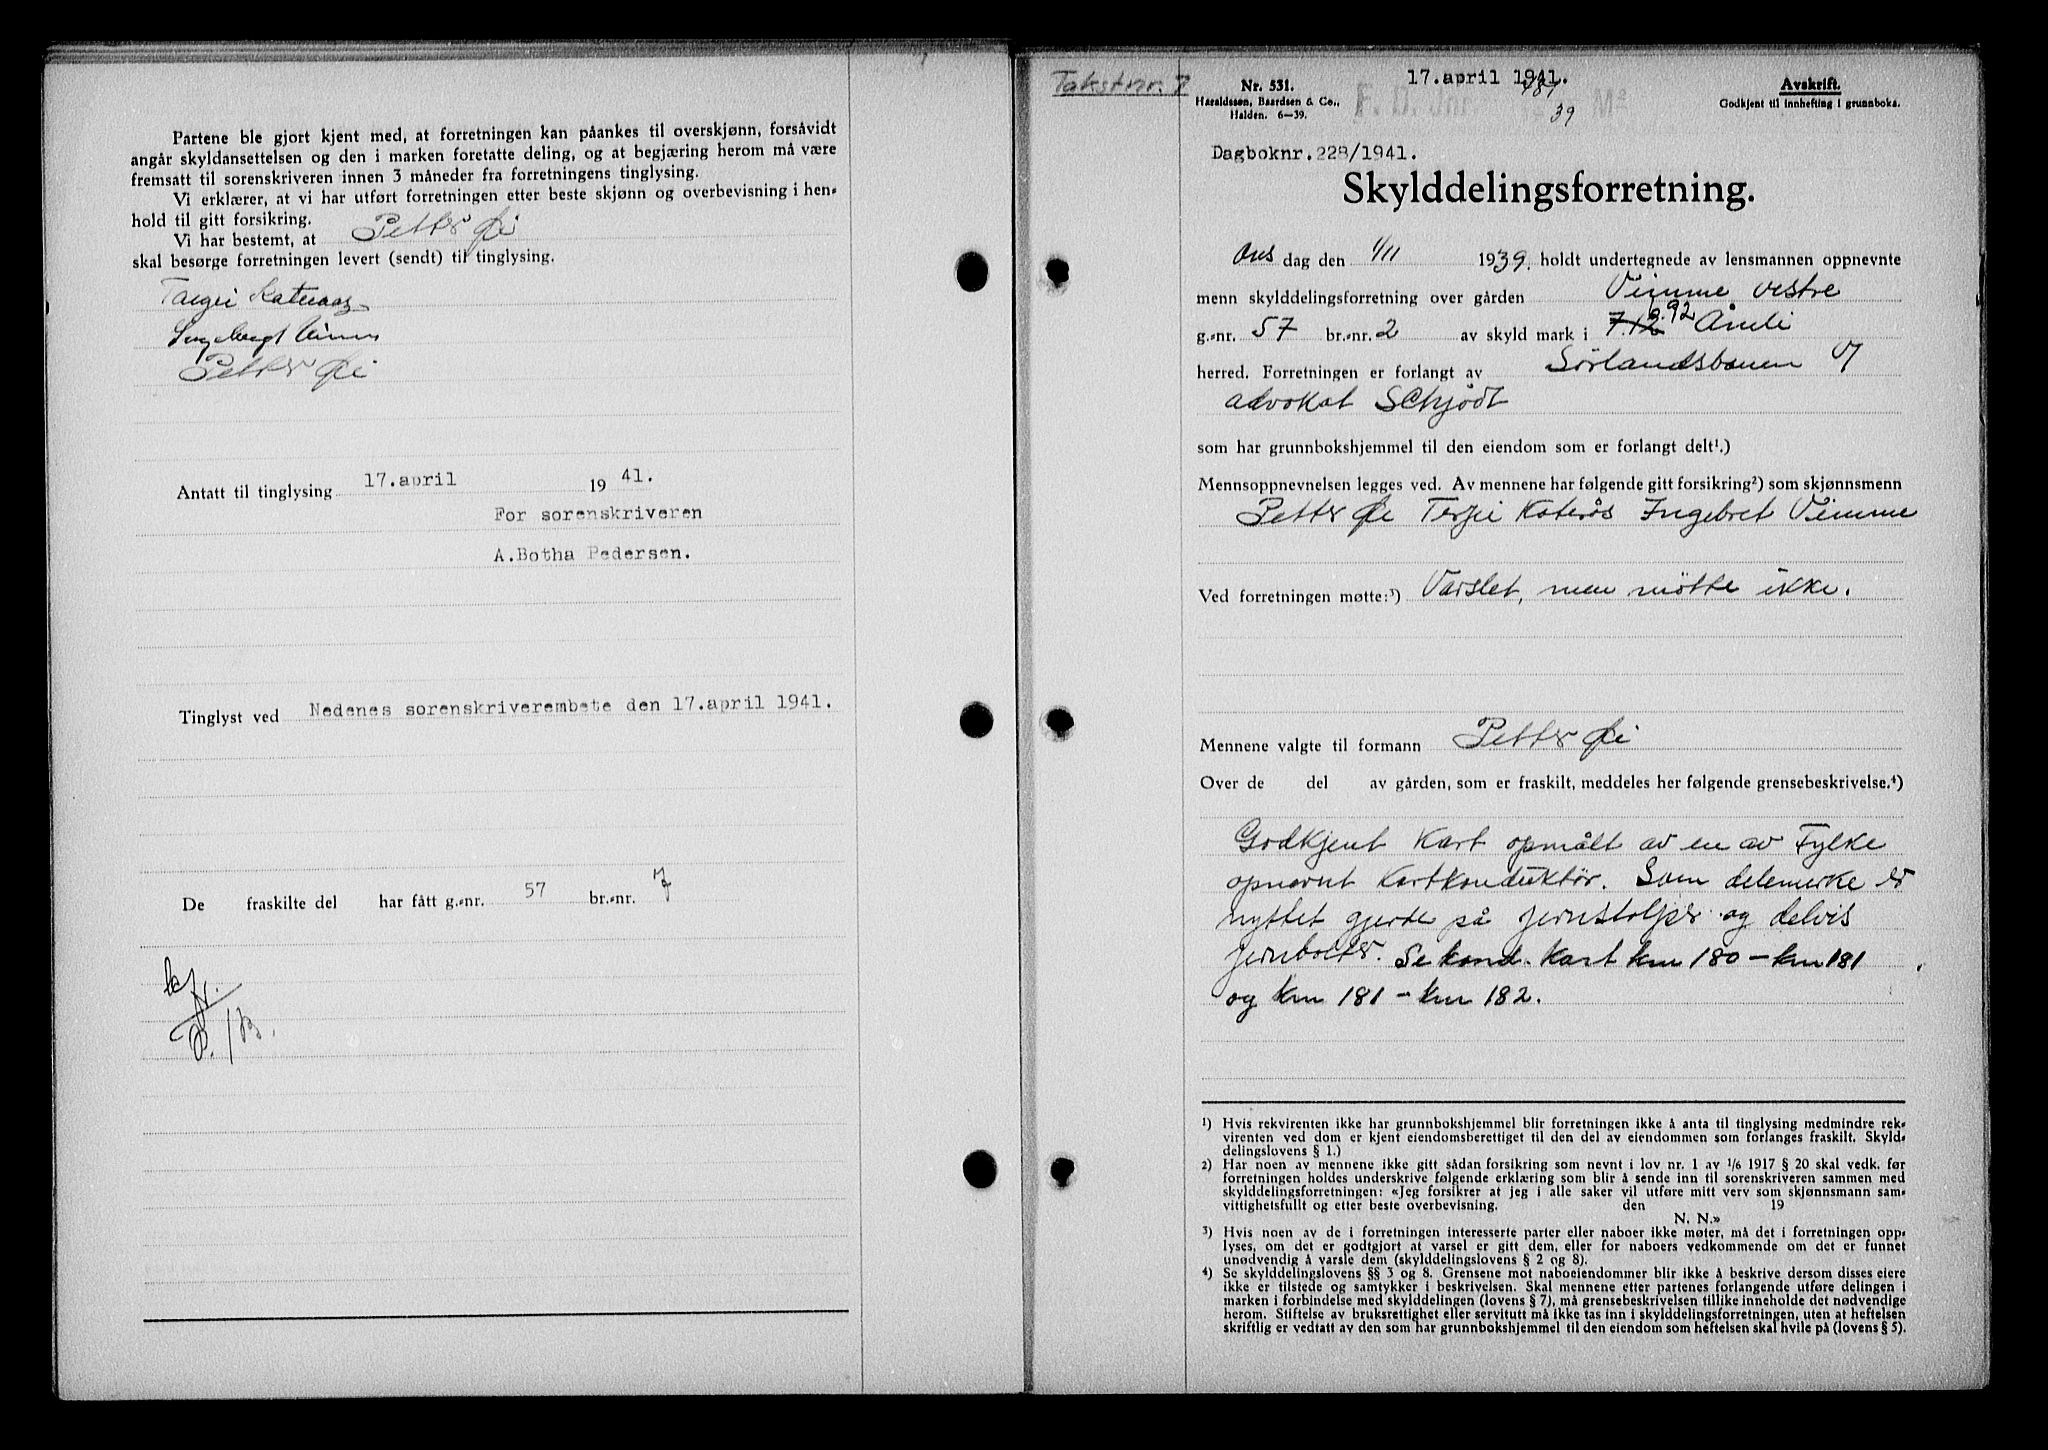 Partene ble gjort kjent med, at forretningen kan påankes til overskjønn, forsåvidt
angår skyldansettelsen og den i marken foretatte deling, og at begjæring herom må være
fremsatt til sorenskriveren innen 3 måneder fra forretningens tinglysing.
Vi erklærer, at vi har utført forretningen etter beste skjønn og overbevisning i hen-
hold til gitt forsikring.
Vi har bestemt, at Petter Øi
skal besørge forretningen levert (sendt) til tinglysing.
Petter Øi
Antatt til tinglysing 17.april 19 41.
For sorenskriveren
A.Botha Pedersen.
Tinglyst ved Nedenes sorenskriverembete den 17.april 1941.
De fraskilte del har fått g.-nr. 57 br.-nr. 7
Takstnr. 7
Nr. 531.
Haraldssen, Baardsen & Co.,
Halden. 6—39.
17.april 1941.
Avskrift.
Godkjent til innhefting i grunnboka.
39
Dagboknr.228/1941.
Skylddelingsforretning.
Ons dag den 1/11 1939. holdt undertegnede av lensmannen oppnevnte
menn skylddelingsforretning over gården Vimme vestre
g.-nr. 57 br.-nr. 2 av skyld mark i 7.12 6.92 Åmli
herred. Forretningen er forlangt av Sørlandsbanen v/
advokat Schjödt
som har grunnbokshjemmel til den eiendom som er forlangt delt¹.)
Mennsoppnevnelsen legges ved. Av mennene har følgende gitt forsikring²) som skjønnsmenn
Petter Øi Terjei Katerås Ingebret Vimme
Ved forretningen møtte:³) Varslet, men møtte ikke.
Mennene valgte til formann Petter Øi
Over de del av gården, som er fraskilt, meddeles her følgende grensebeskrivelse.⁴)
Godkjent Kart opmålt av en av Fylke
opnevnt kartkonduktør. Som delemerke er
nyttet gjerde på jernstolper og delvis
jernbolter. Se kond. kart km 180 – km 181
og km 181 – km 182.
¹) Hvis rekvirenten ikke har grunnbokshjemmel blir forretningen ikke å anta til tinglysing medmindre rek-
virenten ved dom er kjent eiendomsberettiget til den del av eiendommen som forlanges fraskilt. Skyld-
delingslovens § 1.)
²) Har noen av mennene ikke gitt sådan forsikring som nevnt i lov nr. 1 av 1/6 1917 § 20 skal vedk. før
forretningen holdes underskrive følgende erklæring som blir å sende inn til sorenskriveren sammen med
skylddelingsforretningen: «Jeg forsikrer at jeg i alle saker vil utføre mitt verv som skjønnsmann sam-
vittighetsfullt og etter beste overbevisning. den 19
N. N.»
³) Hvis noen av de i forretningen interesserte parter eller naboer ikke møter, må det i forretningen opp-
lyses, om det er godtgjort at varsel er gitt dem, eller for naboers vedkommende om det er funnet
unødvendig å varsle dem (skylddelingslovens § 2 og 8).
⁴) Se skylddelingslovens §§ 3 og 8. Grensene mot naboeiendommer blir ikke å beskrive dersom disses eiere
ikke er tilstede og samtykker i beskrivelsen. Skal mennene etter partenes forlangende utføre delingen i
marken i forbindelse med skylddelingen (lovens § 7), må grensebeskrivelsen tillike inneholde det nødvendige
herom. Stiftelse av bruksrettighet eller servitutt må ikke tas inn i skylddelingsforretningen, uten at heftelsen
skriftlig er vedtatt av den som har grunnbokshjemmel til den eiendom som heftelsen skal hvile på (lovens § 5).